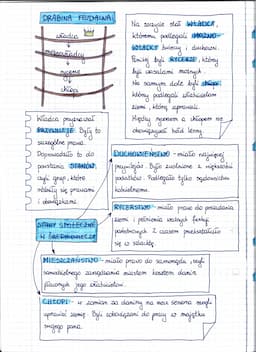 DRABINA FEUDALNA
władca
możnowładcy
rycerze
chłopi
Na szczycie stał WŁADCA,
któremu podlegali MOŻNO-
WŁADCY świeccy i duchowni.
Poniżej byli RYCERZE, którzy
byli wasalami możnych.
Na samym dole byli chłopi,
którzy podlegali właścicielom
ziemi, którą uprawiali.
Między rycerzem a chłopem nie
obowiązywał hołd lenny.
Władca przyznawał
PRZYWILEJE. Były to
szczególne prawa.
Doprowadziło to do
powstania STANÓW,
czyli grup, które
różniły się prawami
i obowiązkami.
DUCHOWIEŃSTWO - miało najwięcej
przywilejów. Było zwolnione z większości
podatków. Podlegało tylko sądownictwu
kościelnemu.
RYCERSTWO - miało prawo do posiadania
ziemi i pełnienia ważnych funkcji
państwowych. Z czasem przekształciło
się w szlachtę.
STANY SPOŁECZNE
W ŚREDNIOWIECZU
MIESZCZAŃSTWO - miało prawo do samorządu, czyli
samodzielnego zarządzania miastem kosztem danin
płaconych jego właścicielowi.
CHŁOPI - w zamian za daniny na rzecz seniora mogli
uprawiać ziemię. Byli zobowiązani do pracy w majątku
swojego pana.